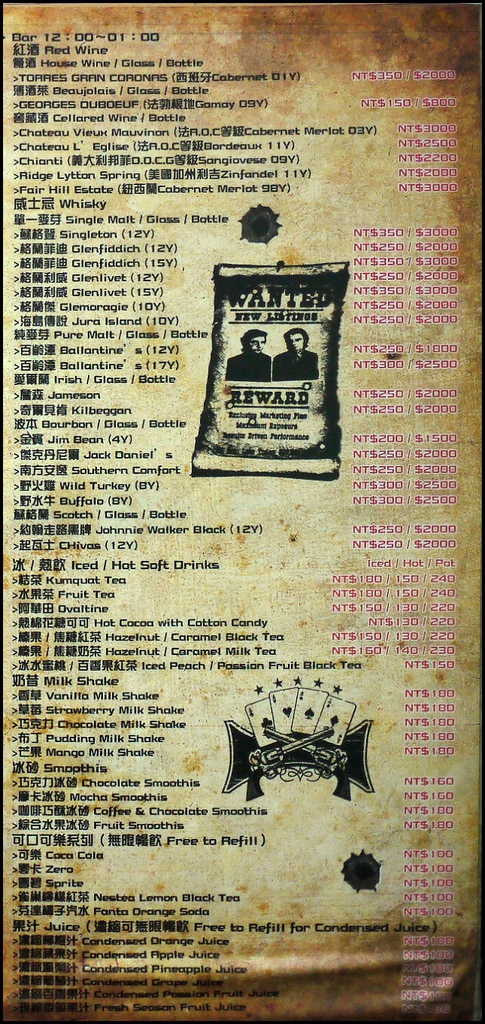 Bar 12：00～01：00
紅酒 Red Wine
餐酒 House Wine / Glass / Bottle
>TORRES GRAN CORONAS (西班牙Cabernet 01Y) NT$350 / $2000
薄酒萊 Beaujolais / Glass / Bottle
>GEORGES DUBOEUF (法勃根地Gamay 09Y) NT$150 / $800
窖藏酒 Cellared Wine / Bottle
>Chateau Vieux Mauvinon (法A.O.C等級Cabernet Merlot 03Y) NT$3000
>Chateau L' Eglise (法A.O.C等級Bordeaux 11Y) NT$2500
>Chianti (義大利邦菲D.O.C.G等級Sangiovese 09Y) NT$2200
>Ridge Lytton Spring (美國加州利吉Zinfandel 11Y) NT$2000
>Fair Hill Estate (紐西蘭Cabernet Merlot 98Y) NT$3000
威士忌 Whisky
單一麥芽 Single Malt / Glass / Bottle
>蘇格登 Singleton (12Y) NT$350 / $3000
>格蘭菲迪 Glenfiddich (12Y) NT$250 / $2000
>格蘭菲迪 Glenfiddich (15Y) NT$350 / $3000
>格蘭利威 Glenlivet (12Y) NT$250 / $2000
>格蘭利威 Glenlivet (15Y) NT$350 / $3000
>格蘭傑 Glemoragie (10Y) NT$250 / $2000
>海島傳說 Jura Island (10Y) NT$250 / $2000
純麥芽 Pure Malt / Glass / Bottle
>百齡潭 Ballantine's (12Y) NT$250 / $1800
>百齡潭 Ballantine's (17Y) NT$300 / $2500
愛爾蘭 Irish / Glass / Bottle
>詹森 Jameson NT$250 / $2000
>奇爾貝肯 Kilbeggan NT$250 / $2000
波本 Bourbon / Glass / Bottle
>金賓 Jim Bean (4Y) NT$200 / $1500
>傑克丹尼爾 Jack Daniel's NT$250 / $2000
>南方安逸 Southern Comfort NT$250 / $2000
>野火雞 Wild Turkey (8Y) NT$300 / $2500
>野水牛 Buffalo (8Y) NT$300 / $2500
蘇格蘭 Scotch / Glass / Bottle
>約翰走路黑牌 Johnnie Walker Black (12Y) NT$250 / $2000
>起瓦士 CHivas (12Y) NT$250 / $2000
WANTED
NEW LISTINGS
REWARD
Exclusive Marketing Plan
Maximum Exposure
Results Driven Performance
冰 / 熱飲 Iced / Hot Soft Drinks Iced / Hot / Pot
>桔茶 Kumquat Tea NT$180 / 150 / 240
>水果茶 Fruit Tea NT$180 / 150 / 240
>阿華田 Ovaltine NT$150 / 130 / 220
>熱棉花糖可可 Hot Cocoa with Cotton Candy NT$130 / 220
>榛果 / 焦糖紅茶 Hazelnut / Caramel Black Tea NT$150 / 130 / 220
>榛果 / 焦糖奶茶 Hazelnut / Caramel Milk Tea NT$160 / 140 / 230
>冰水蜜桃 / 百香果紅茶 Iced Peach / Passion Fruit Black Tea NT$150
奶昔 Milk Shake
>香草 Vanilla Milk Shake NT$180
>草莓 Strawberry Milk Shake NT$180
>巧克力 Chocolate Milk Shake NT$180
>布丁 Pudding Milk Shake NT$180
>芒果 Mango Milk Shake NT$180
冰砂 Smopthis
>巧克力冰砂 Chocolate Smoothis NT$160
>摩卡冰砂 Mocha Smoothis NT$160
>咖啡巧酥冰砂 Coffee & Chocolate Smoothis NT$180
>綜合水果冰砂 Fruit Smoothis NT$180
可口可樂系列 (無限暢飲 Free to Refill)
>可樂 Coca Cola NT$100
>零卡 Zero NT$100
>雪碧 Sprite NT$100
>雀巢檸檬紅茶 Nestea Lemon Black Tea NT$100
>芬達橘子汽水 Fanta Orange Soda NT$100
果汁 Juice (濃縮可無限暢飲 Free to Refill for Condensed Juice)
>濃縮柳橙汁 Condensed Orange Juice NT$100
>濃縮蘋果汁 Condensed Apple Juice NT$100
>濃縮鳳梨汁 Condensed Pineapple Juice NT$100
>濃縮葡萄汁 Condensed Grape Juice NT$100
>濃縮百香果汁 Condensed Passion Fruit Juice NT$100
Fresh Season Fruit Juice